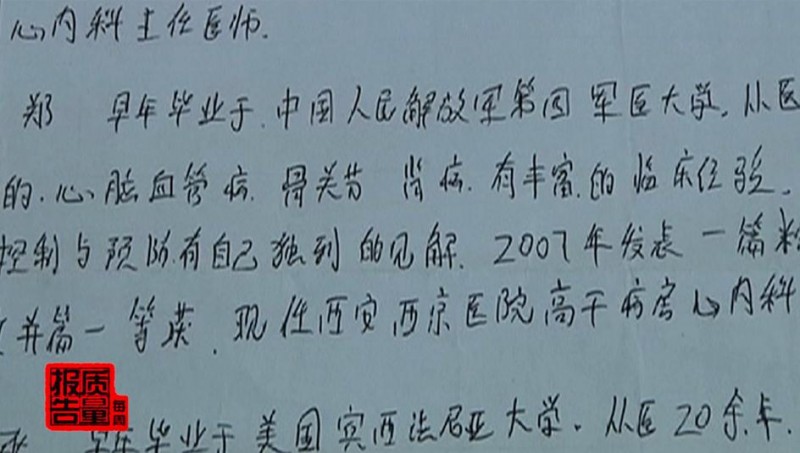 心内科主任医师.
郑 早年毕业于.中国人民解放军第四军医大学.从医
的.心脑血管病.骨关节 肾病.有丰富.的临床经验.
控制与预防有自己独到的见解.2007年发表一篇
一等奖.现任西安西京医院高干病房心内科
早年毕业于美国宾西法尼亚大学.从医20余年.
质量报告
每周